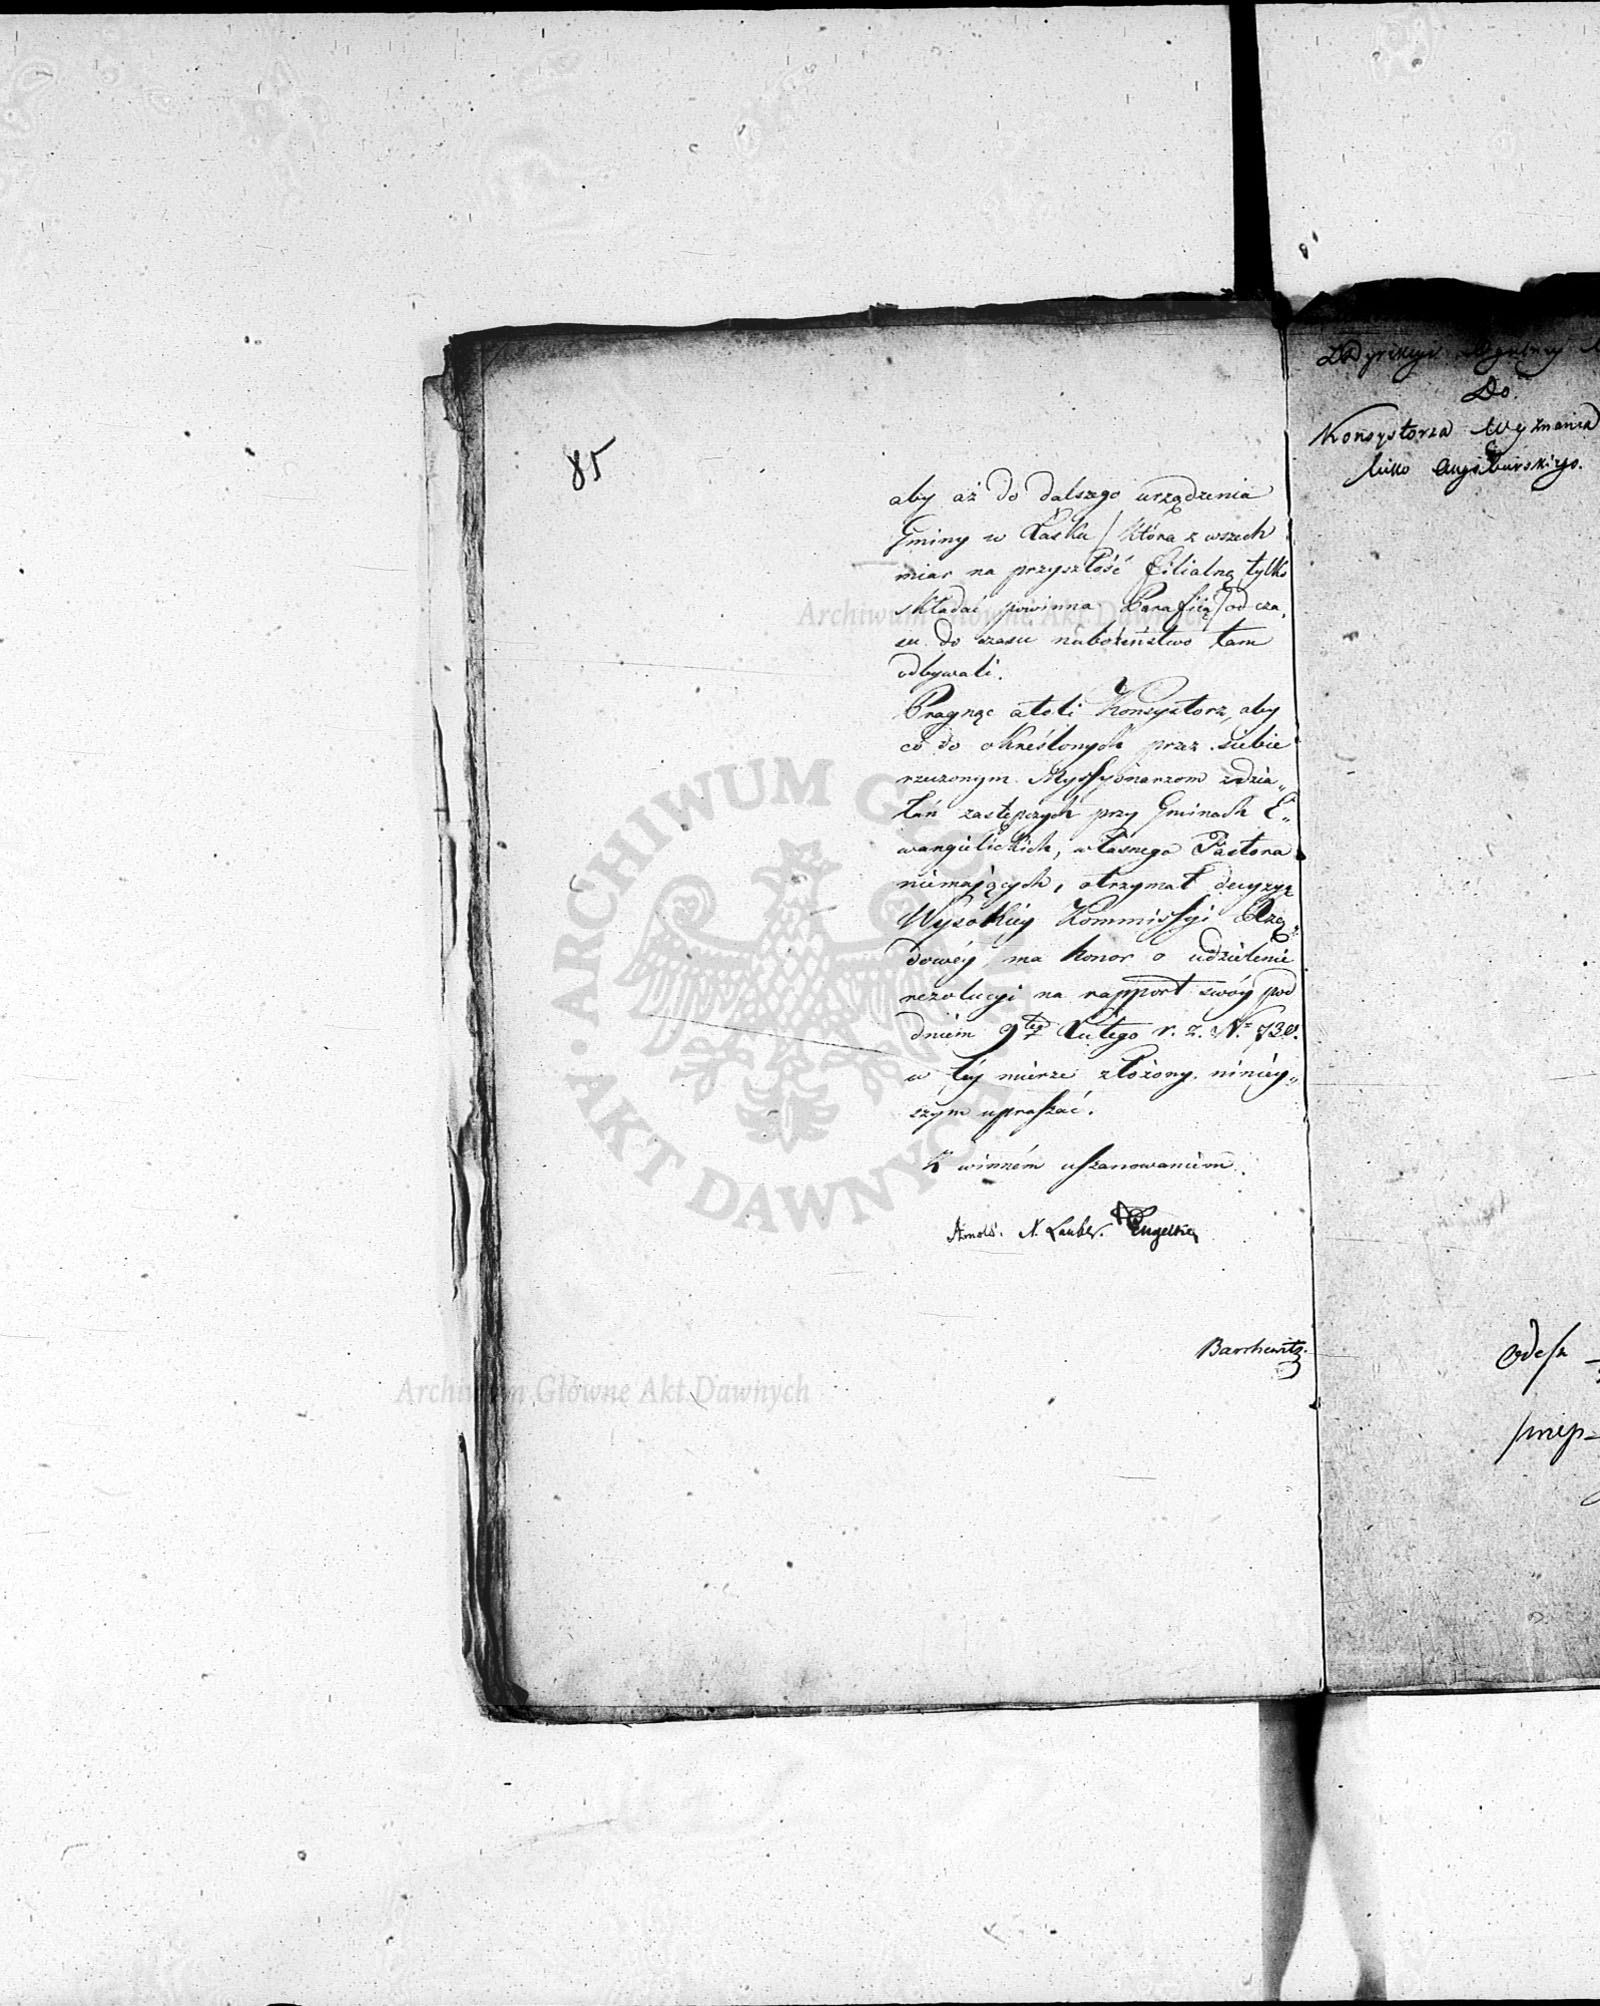 85
aby aż do dalszego urządzenia
Gminy w Łasku / która z wszech
miar na przyszłość filialną tylko
składać powinna Parafiią / od cza„
su do czasu nabożeństwo tam
odbywali.
Pragnąc atoli Konsystorz, aby
co do określonych przez siebie
rzeczonym Myssyonarzom zdzia„
łań zastępczych przy Gminach E„
wangielickich, własnego Pastora
niemających, otrzymał decyzyę
Wysokiéy Kommissyi Rzą„
dowéy ma honor o udzielenie
rezolucyi na rapport swóy pod
dniem 9tego Lutego r. z. No 730.
w téy mierze złożony niniey„
szym upraszać.
Z winném uszanowaniem.
Arnold. N. Lauber. Engelke
Barchewitz.
Do
Konsystorza Wyznania
Augsburskiego.
Archiwum Główne Akt Dawnych
Archiwum Główne Akt Dawnych
ARCHIWUM GŁÓWNE AKT DAWNYCH